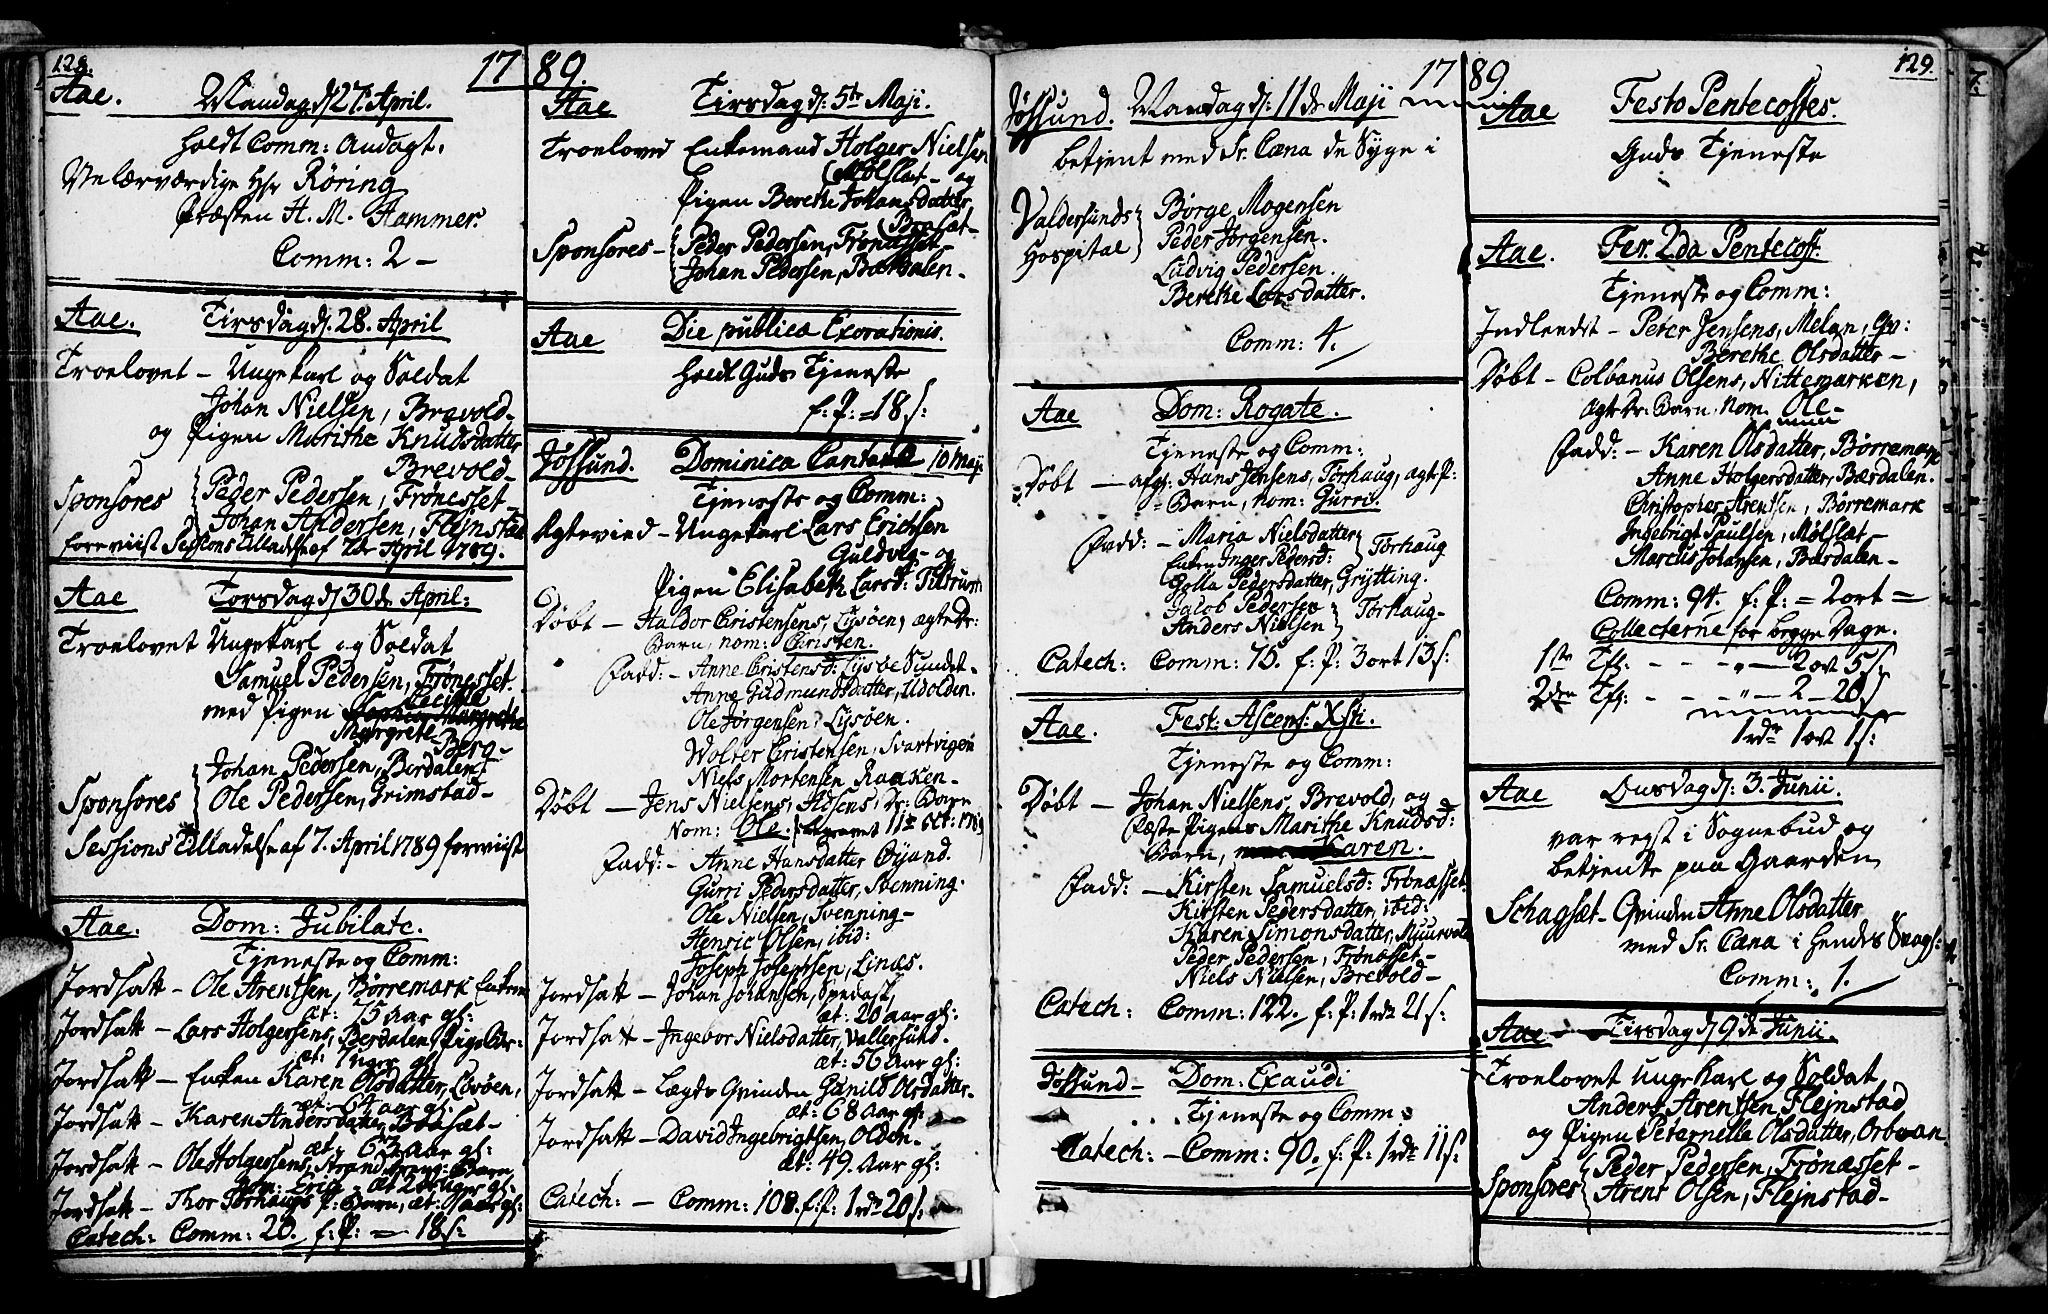 128.
1789.
Aae. Mandag d: 27. April.
holdt Comm: Andagt.
Velærværdige Hr Røring
Præsten H. M. Hammer.
Comm: 2 -
Aae. Tirsdag d: 28. April
Troelovet - Ungekarl og Soldat
Johan Nielsen, Brevold
og Pigen Marithe Knudsdatter
Brevold
Sponsores Peder Pedersen, Frønesset
Johan Andersen, Flejnstad
foreviist Sessions Tilladelse af 7de April 1789.
Aae Torsdag d: 30de April:
Troelovet Ungekarl og Soldat
Samuel Pedersen, Frønesset.
med Pigen
Margrete Berg
Johan Pedersen, Berdalen
Sponsores Ole Pedersen, Grimstad-
Sessions Tilladelse af 7. April 1789 foreviist
Aae. Dom: Jubilate.
Tjeneste og Comm:
Jordsatt - Ole Arentsen, Børremark Enkem
æt: 75 Aar gl:
Jordsatt - Lars Holgersens, Berdalen, Pigebr:
æt: 7 uger gl:
Jordsatt - Enken Karen Olsdatter, Løsøen,
æt: 64 aar gl:
Jordsatt - Karen Andersdatter, Brasæt-
æt: 63 aar gl:
Jordsatt - Ole Holgersens, Strand, Barn
nom: Erich - æt 2 Uger gl:
Jordsatt - Thor Torhaugs P: Barn, æt: aar gl:
Catech: Comm: 20. f: P: = 18 s:
Aae Tirsdag d: 5te Maji.
Troeloved Enkemand Holger Nielsen
Mølslæt - og
Pigen Berethe Johansdatter
Bresæt-
Sponsores - Peder Pedersen, Frønesset
Johan Pedersen, Bærdalen-
Aae Die publicæ Exorationis.
holdt Guds Tjeneste
f: P: = 18 s:
Jøssund. Dominica Cantate 10 Maji
Tjeneste og Comm:
Ægtevied - Ungekarl Lars Erichsen
Guldvig - og
Pigen Elisabeth Larsd: Tiltrum
Døbt - Haldor Christensens, Lysøen, ægte Dr:
Barn, nom: Christen.
Fadd: - Anne Christensd: Lysøe Sundet-
Anne Gudmundsdatter, Udolden.
Ole Jørgensen, Lysøen.
Wolter Christensen, Svartvigen
Niels Mortensen Raaken-
Døbt - Jens Nielsens, Adsens, Dr: Barn
Nom: Ole. begravet 11te Oct: 1789
Fadd: - Anne Hansdatter Øyand.
Gurri Pedersdatter, Svenning.
Ole Nielsen, Svenning-
Henric Olsen, ibid:
Joseph Josephsen, Linæs.
Jordsatt - Johan Johansen, Spedast,
æt: 20 aar gl:
Jordsatt - Ingebor Nielsdatter, Vallersund.
æt: 56 Aar gl:
Jordsatt - Lægds Qvinden Gunild Olsdatter-
æt: 68 Aar gl:
Jordsatt - David Ingebrigtsen, Olden-
æt: 49. Aar gl:
Catech: - Comm: 108. f: P: 1 rdr 20 s:
1789
129.
Jøssund. Mandag d: 11 de Maji
betjent med Sr. Cæna de Syge i
Valdersunds Hospital
Børge Mogensen
Peder Jørgensen.
Ludvig Pedersen.
Berethe Larsdatter.
Comm: 4.
Aae Dom: Rogate.
Tjeneste og Comm:
Døbt - afg: Hans Jensens, Torhaug, ægt P:
Barn, nom: Gurri.
Fadd: - Maria Nielsdatter Torhaug
Enken Inger Pedersd:
Golla Pedersdatter, Grytting.
Jacob Pedersen Torhaug-
Anders Nielsen
Catech: Comm: 76. f: P: 3 ort 13 s:
Aae. Fest: Ascens: Xsti.
Tjeneste og Comm:
Døbt - Johan Nielsens, Brevold, og
Fæste Pigens Marithe Knudsd:
Barn, Karen.
Fadd: - Kirsten Samuelsd: Frønæsset
Kirsten Pedersdatter, ibid:
Karen Simonsdatter, Muurvold
Peder Pedersen, Frønæsset-
Niels Nielsen, Brevold-
Catech: Comm: 122. f: P: 1 rdr 21 s:
Jøssund- Dom: Exaudi
Tjeneste og Comm:
Catech: - Comm: 90. f: P: 1 rdr 11 s:
Aae Festo Pentecostes.
Guds Tjeneste
Aae. Fer. 2da Pentecost:
Tjeneste og Comm:
Indledet - Peter Jensens, Melan, Qv:
Berethe Olsdatter-
Døbt - Colbanus Olsens, Nittemarken,
ægte Dr: Barn, nom. Ole-
Fadd: - Karen Olsdatter, Børremark
Anne Holgersdatter, Bærdalen.
Christopher Arentsen, Børremark
Ingebrigt Paulsen, Mølslæt-
Marcus Johansen, Bærdalen-
Comm: 94. f: P: = 2 ort =
Collecterne for begge Dage.
1ste Tfl: - - - 2 ort 5 s:
2den Tfl: - - - 2 - 20 s
1 rdr 1 ort 1 s:
Aae Onsdag d: 3. Junii.
var rejst i Sognebud og
betjente paa Gaarden
Schagsæt- Qvinden Anne Olsdatter
med Sr. Cæna i hendes Svagh:
Comm: 1.
Aae Tirsdag d: 9 de Junii.
Troelovet Ungekarl og Soldat
Anders Arentsen Flejnstad
og Pigen Peternelle Olsdatter, Ordvan
Sponsores Peder Pedersen, Frønæsset-
Arent Olsen, Flejnstad-